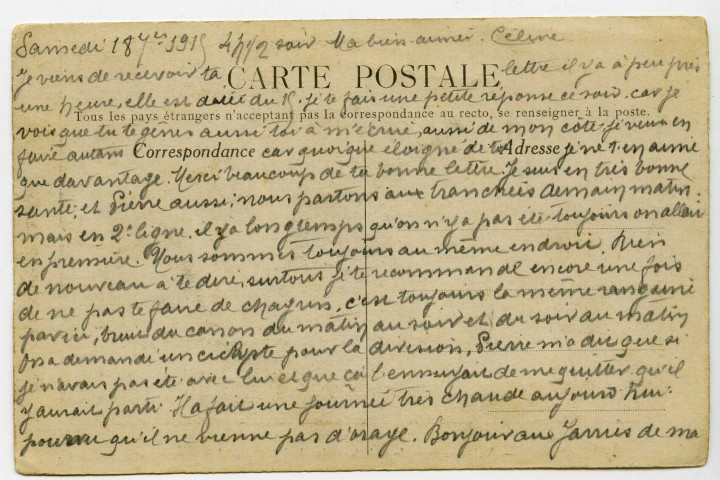 Samedi 18 7bre 1915 4h1/2 soir Ma bien aimée Céline
Je viens de recevoir ta lettre il y a à peu près
CARTE POSTALE
une heure, elle est datée du 15. je te fais une petite réponse ce soir car je
Tous les pays étrangers n'acceptant pas la correspondance au recto, se renseigner à la poste.
vois que tu te génes aussi toi à m'ecrire, aussi de mon coté je veux en
faire autant car quoique éloigné de toi je ne t'en aime
Correspondance Adresse
que davantage. Merci beaucoup de ta bonne lettre. Je suis en très bonne
santé et Pierre aussi; nous partons aux tranchées demain matin.
mais en 2e ligne. il y a longtemps qu'on n'y a pas été toujours on allait
en première. Nous sommes toujours au même endroit. Rien
de nouveau à te dire, surtout je te recommande encore une fois
de ne pas te faire de chagrin, c'est toujours la même rangaine
par ici, bruit du canon du matin au soir et du soir au matin
On a demandé un cycliste pour la division, Pierre m'a dit que si
je n'avais pas été avec lui et que ça l'ennuyait de me quitter qu'il
y aurait parti. Il a fait une journée très chaude aujourd'hui
pourvu qu'il ne vienne pas d'orage. Bonjour aux de ma